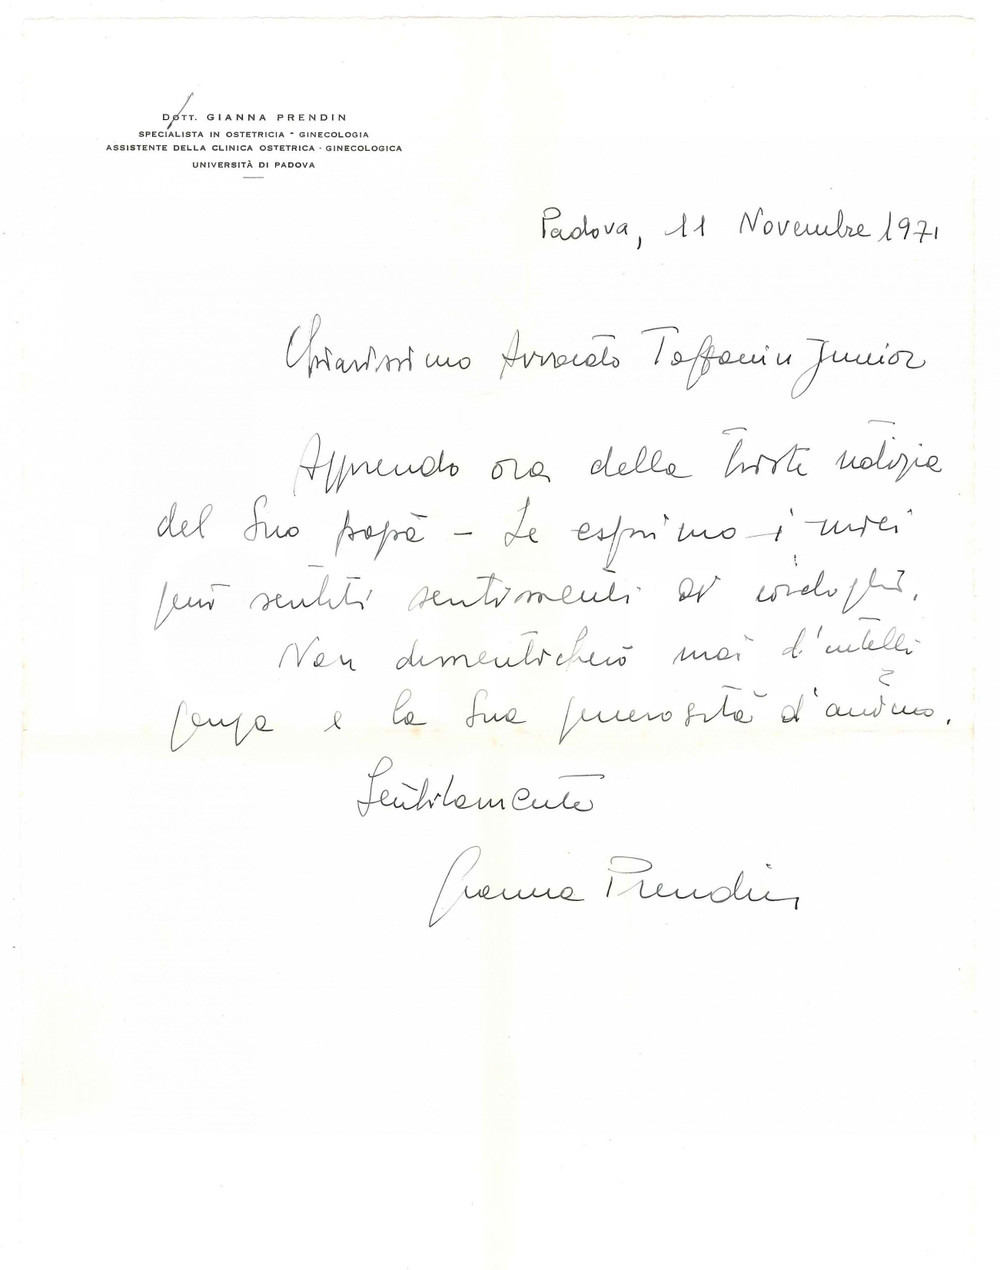 DOTT. GIANNA PRENDIN
SPECIALISTA IN OSTETRICIA - GINECOLOGIA
ASSISTENTE DELLA CLINICA OSTETRICA - GINECOLOGICA
UNIVERSITÀ DI PADOVA
Padova, 11 Novembre 1971
Chiarissimo Avvocato Toffanin Junior
Apprendo ora della triste notizia
del Suo papà - Le esprimo i miei
più sentiti sentimenti di cordoglio.
Non dimenticherò mai l'intelli
genza e la Sua generosità d'animo.
Sentitamente
Gianna Prendin